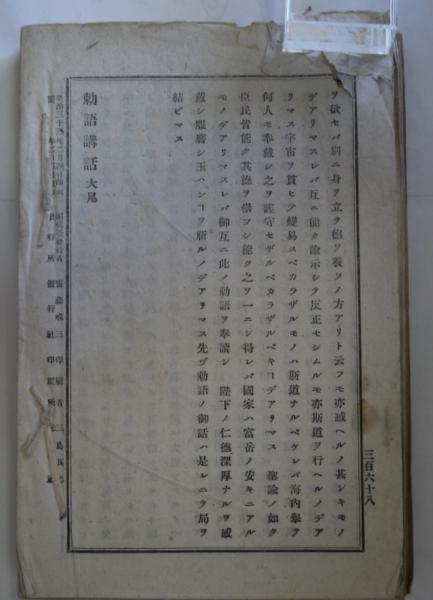 ヲ欲セバ別ニ身ヲ立ラ徳ヲ養フノ方アリト云フモ亦惑ヘルノ甚シキモノ
デアリマスレバ互ニ能ク諭示シテ反正セシムルモ亦斯道ヲ行ヘルノデア
リマス宇宙ヲ貫ヒテ變易スベカラザルモノハ斯道ナルベケレバ海内擧ヲ
何人モ奉戴シ之ヲ謹守セザルベカラザルベキヿデアリマス 聖諭ノ如ク
臣民皆能ク其德ヲ崇フシ能ク之ヲ一ニシ得レバ國家ハ富岳ノ安キニアル
モノデアリマスレバ御互ニ此ノ勅語ヲ奉讀シ 陛下ノ仁德深厚ナルヲ感
戴シ服膺シ玉ハンヿヲ祈ルノデアリマス先ヅ勅語ノ御話ハ是レニヲ局ヲ
結ビマス
勅語講話 大尾
明治三十 年 月 日印刷 齋藤戒三 印刷者 三島
發行所 偕行社 印刷所
三百六十八